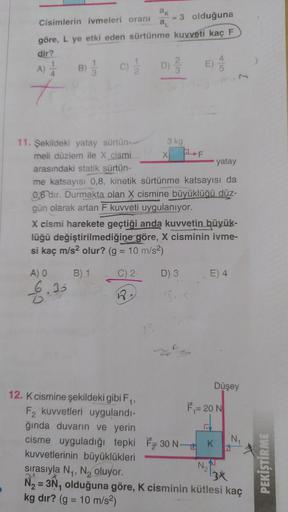 Cisimlerin ivmeleri oranı aK/aL = 3 olduğuna
göre, L ye etki eden sürtünme kuvveti kaç F
dir?
A) 1/4 B) 1/3 C) 1/2 D) 2/3 E) 4/5
11. Şekildeki yatay sürtün-
meli düzlem ile X cismi
arasındaki statik sürtün-
3 kg
X
F
yatay
me katsayısı 0,8, kinetik sürtünme katsayısı da
0,6 dır. Durmakta olan X cismine büyüklüğü düz-
gün olarak artan F kuvveti uygulanıyor.
X cismi harekete geçtiği anda kuvvetin büyük-
lüğü değiştirilmediğine göre, X cisminin ivme-
si kaç m/s² olur? (g = 10 m/s²)
A) 0 B) 1 C) 2 D) 3 E) 4
12. K cismine şekildeki gibi F₁,
F₂ kuvvetleri uygulandı-
ğında duvarın ve yerin
cisme uyguladığı tepki
kuvvetlerinin büyüklükleri
sırasıyla N₁, N₂ oluyor.
Düşey
F₁= 20 N
F₂= 30 N
K
N₁
N₂
3x
N₂ = 3N₁ olduğuna göre, K cisminin kütlesi kaç
kg dır? (g = 10 m/s²)
PEKİŞTİRME